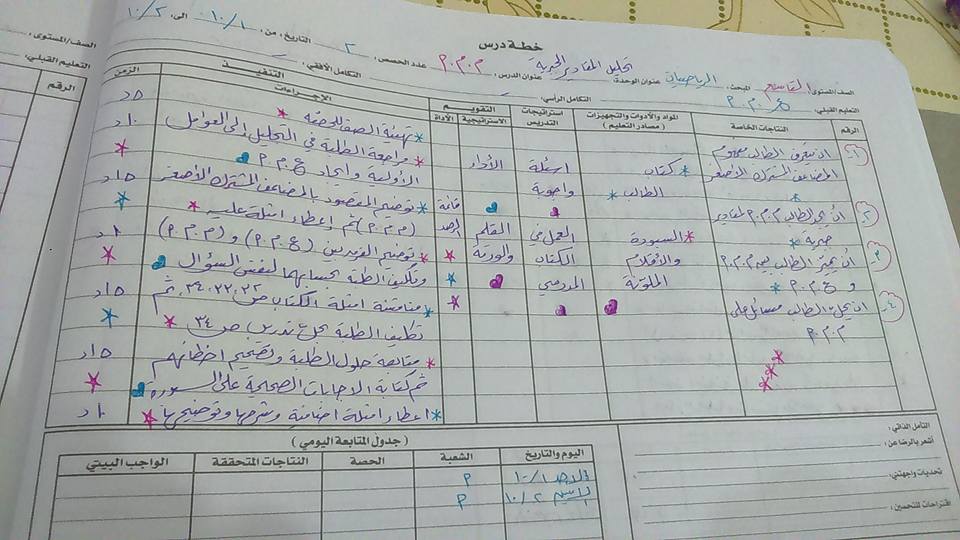 خطة درس
الصف/المستوى: التاسع المبحث: الرياضيات عنوان الوحدة: تحليل المقادير الجبرية عنوان الدرس: م.م.م عدد الحصص: ٢ التاريخ: من: ١٠/١ الى: ١٠/٢
التعليم القبلي: ع.م.م التكامل الرأسي: التكامل الأفقي:
الرقم
النتاجات الخاصة
المواد والأدوات والتجهيزات (مصادر التعليم)
استراتيجيات التدريس
التقويم
الاستراتيجية
الأداة
التنفيذ
الإجراءات
الزمن
١-
ان يتعرف الطالب مفهوم
المضاعف المشترك الأصغر
٢-
أن يجد الطالب م.م.م لمقادير
جبرية
٣-
أن يميز الطالب بين م.م.م
و ع.م.م
٤-
ان يحل الطالب مسائل على
م.م.م
كتاب
الطالب
السبورة
والأقلام
الملونة
اسئلة
واجوبة
العمل في
الكتاب
المدرسي
الأداء
القلم
والورقة
قائمة
رصد
تهيئة الصف للحصة
٥ د
مراجعة الطلبة في التحليل إلى العوامل
١٠ د
الأولية وايجاد ع.م.م
توضيح المقصود بالمضاعف المشترك الأصغر
١٥ د
(م.م.م) ثم إعطاء امثلة عليه
توضيح الفرق بين (ع.م.م) و (م.م.م)
١٠ د
وتكليف الطلبة بحسابهما لنفس السؤال
مناقشة امثلة الكتاب ص ٣٢،٣٣،٣٤ ثم
١٥ د
تكليف الطلبة بحل تدريس ص ٣٤
متابعة حلول الطلبة وتصحيح اخطائهم
١٥ د
ثم كتابة الاجابات الصحيحة على السبورة
اعطاء امثلة اضافية وشرحها وتوضيحها
١٠ د
(جدول المتابعة اليومي)
اليوم والتاريخ الشعبة الحصة النتاجات المتحققة الواجب البيتي
الاحد ١٠/١ م
الاثنين ١٠/٢ م
التأمل الذاتي:
أشعر بالرضا عن:
تحديات واجهتني:
اقتراحات للتحسين:
الصف/المستوى:
التعليم القبلي:
الرقم